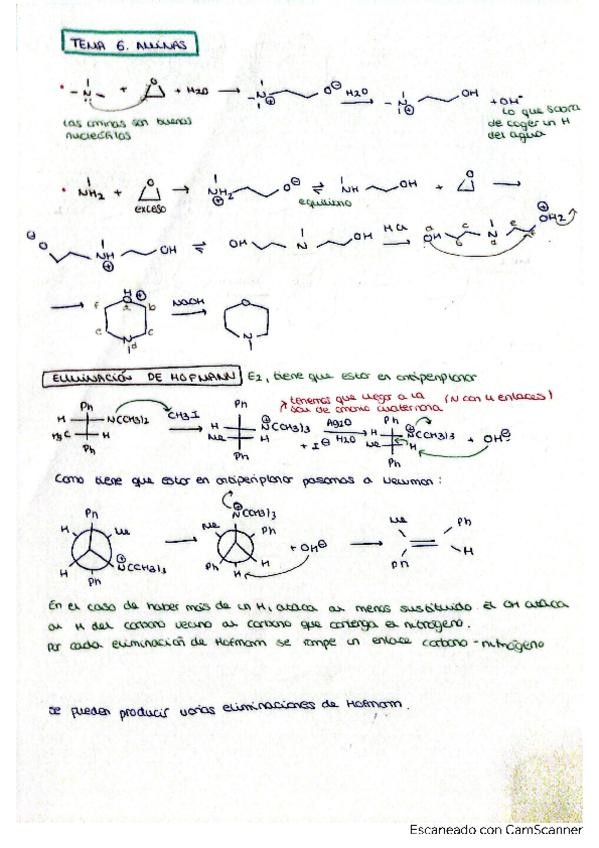 TEMA 6. AMINAS
-N- + O + H2O → -N⊕ O⊖ H2O → -N⊕ OH + OH-
Las aminas son buenos
nucleófilos
Lo que sobra
de coger un H
del agua
NH2 + O → NH2⊕ O⊖ ⇌ NH OH + O →
exceso
equilibrio
⊖O NH⊕ OH ⇌ OH N OH HCl → OH N ⊕OH2
a b c d e f
→ H O⊕ a b c N d e f NaOH → O N
ELIMINACIÓN DE HOFMANN E2, tiene que estar en antiperiplanar
tenemos que llegar a la (N con 4 enlaces)
sal de amonio cuaternaria
Ph H N(CH3)2 H3C H Ph CH3I → Ph H ⊕N(CH3)3 Me H Ph + I⊖ Ag2O H2O → Ph H ⊕N(CH3)3 Me H Ph + OH⊖
Como tiene que estar en antiperiplanar pasamos a Newman:
Ph H Me H ⊕N(CH3)3 Ph → ⊕N(CH3)3 Me Ph Ph H H + OH⊖ → Me Ph Ph H
En el caso de haber más de un H, ataca al menos sustituido. El OH ataca
al H del carbono vecino al carbono que contenga el nitrógeno.
Por cada eliminación de Hofmann se rompe un enlace carbono-nitrógeno
Se pueden producir varias eliminaciones de Hofmann.
Escaneado con CamScanner